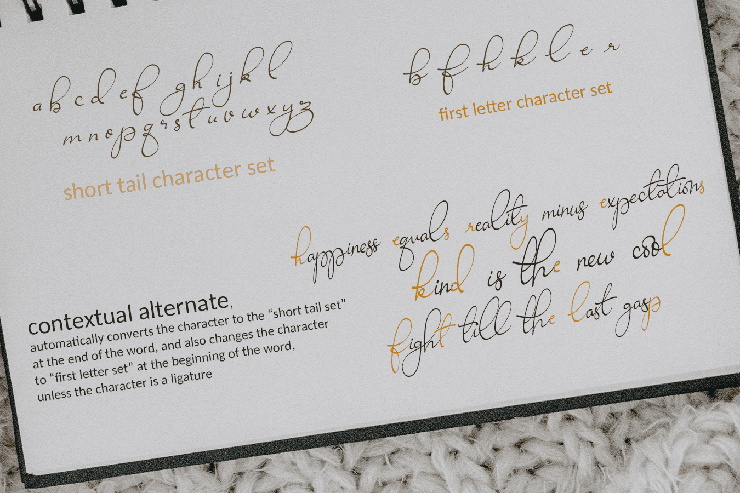 a b c d e f g h i j k l
m n o p q r s t u v w x y z
short tail character set
b f h k l e r
first letter character set
happiness equals reality minus expectations
kind is the new cool
fight till the last gasp
contextual alternate,
automatically converts the character to the “short tail set”
at the end of the word, and also changes the character
to “first letter set” at the beginning of the word,
unless the character is a ligature